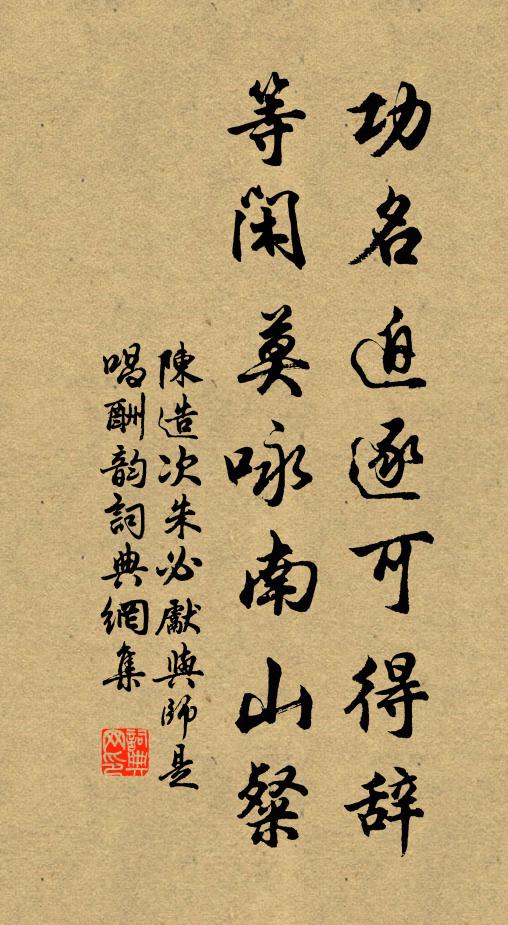 功名迫逐可得辞
等闲莫咏南山粲
陳造次朱必獻與師是
唱酬韵詞典網集
詞典网印